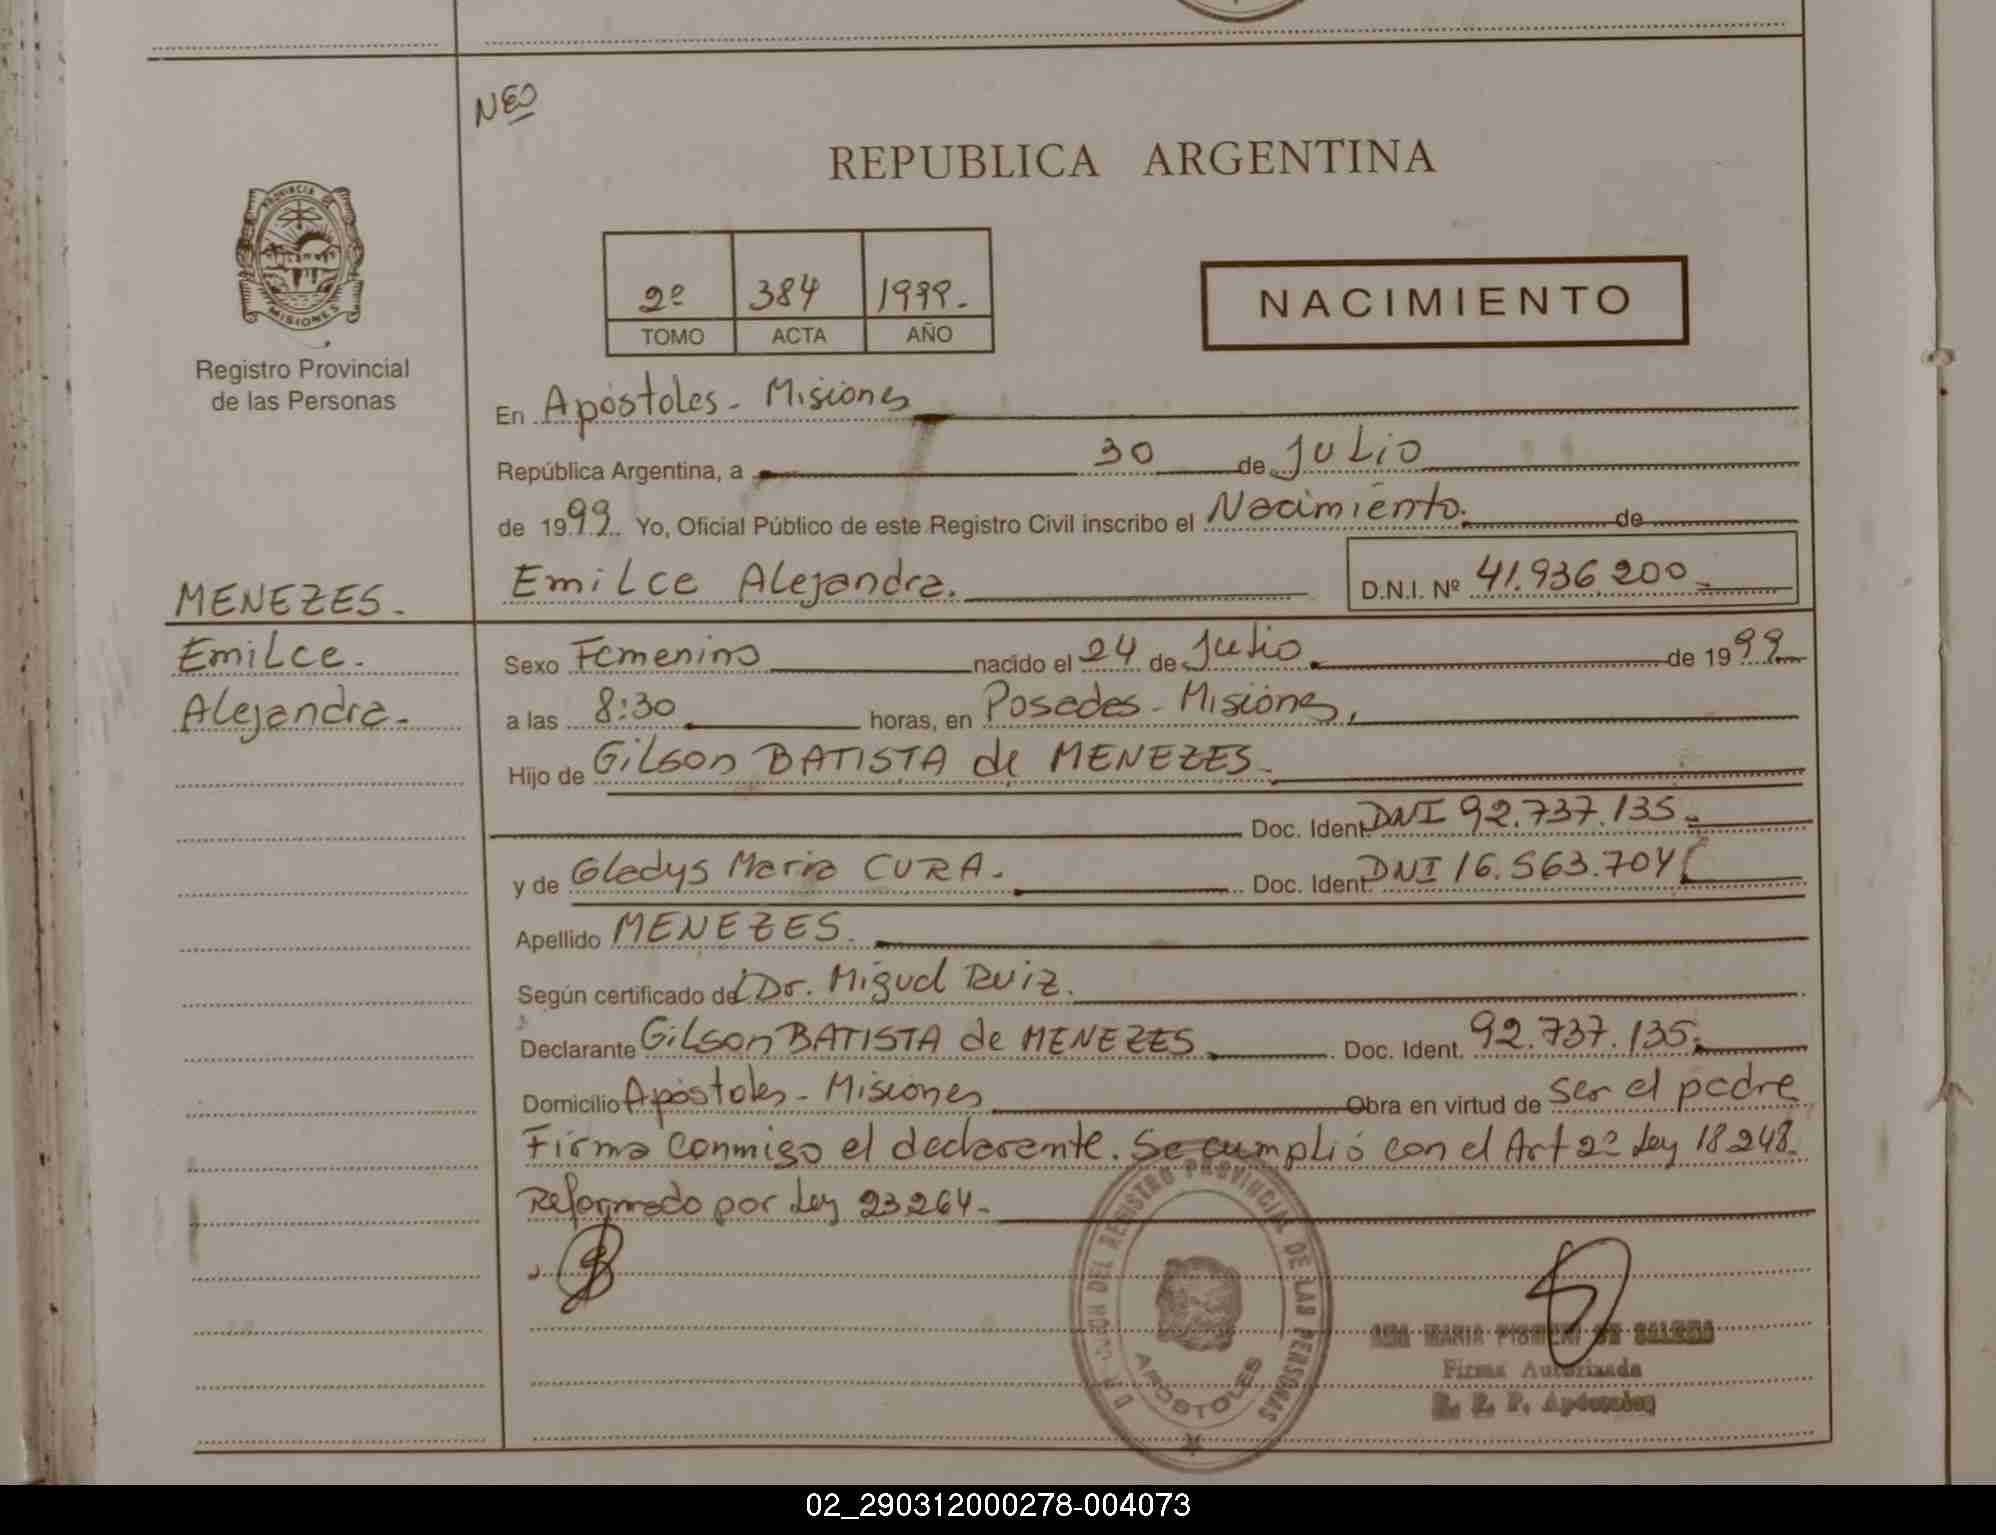 NEO
REPUBLICA ARGENTINA
PROVINCIA DE
MISIONES
Registro Provincial
de las Personas
2º 384 1999.-
TOMO ACTA AÑO
NACIMIENTO
En Apóstoles - Misiones
República Argentina, a 30 de Julio
de 1999. Yo, Oficial Público de este Registro Civil inscribo el Nacimiento. de
Emilce Alejandra. D.N.I. Nº 41.936.200 -
MENEZES -
Emilce.
Alejandra -
Sexo Femenino nacido el 24 de Julio de 1999
a las 8:30 horas, en Posadas - Misiones,
Hijo de Gilson BATISTA de MENEZES -
Doc. Ident. DNI 92.737.135 -
y de Gladys Maria CURA. Doc. Ident. DNI 16.563.704
Apellido MENEZES.
Según certificado del Dr. Miguel Ruiz.
Declarante Gilson BATISTA de MENEZES Doc. Ident. 92.737.135.
Domicilio Apóstoles - Misiones Obra en virtud de ser el padre
Firma conmigo el declarante. Se cumplió con el Art 2º Ley 18248.
Reformado por Ley 23264 -
DEL REGISTRO PROVINCIAL DE LAS PERSONAS
APOSTOLES
ANA MARIA DE
Firma Autorizada
R. P. P. Apóstoles
02_290312000278-004073